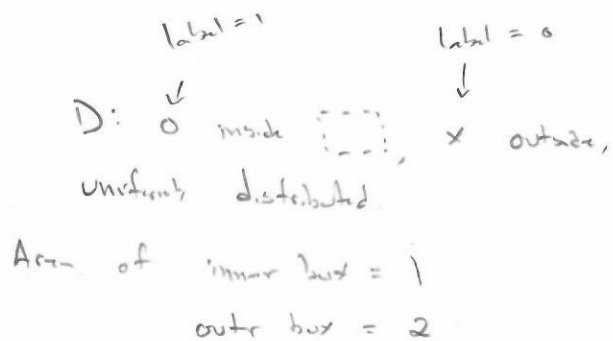 label = 1 label = 0
D: O inside , x outside,
uniformly distributed
Area of inner box = 1
outer box = 2